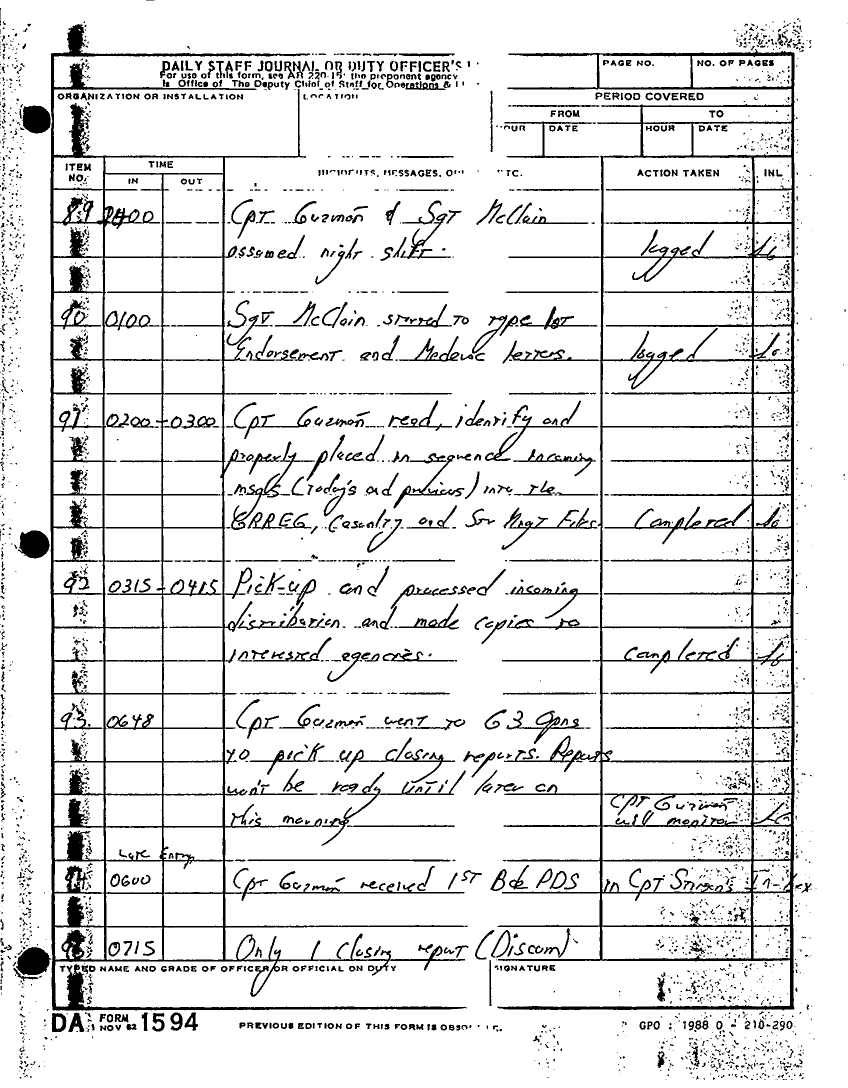 DAILY STAFF JOURNAL OR DUTY OFFICER'S
PAGE NO.
NO. OF PAGES
For use of this form, see AR 220-15; the proponent agency
is Office of The Deputy Chief of Staff for Operations &
ORGANIZATION OR INSTALLATION
LOCATION
PERIOD COVERED
FROM
TO
HOUR
DATE
HOUR
DATE
ITEM NO.
TIME
IN
OUT
INCIDENTS, MESSAGES, ETC.
ACTION TAKEN
INL
89 2400 Cpt Guzmán & Sgt McClain
assumed night shift. logged
90 0100 Sgt McClain started to type 1st
Endorsement and Medevac letters. logged
91 0200-0300 Cpt Guzmán read, identify and
properly placed in sequence incoming
msgs (today's and previous) into the
GRREG, Casualty and Str Mngt Files. Completed
92 0315-0415 Pick-up and processed incoming
distribution and made copies to
interested agencies. Completed
93. 0648 Cpt Guzmán went to G3 Opns
to pick up closing reports. Reports
won't be ready until later on
this morning CPT Guzmán will monitor
Late Entry
94 0600 Cpt Guzmán received 1ST Bde PDS in CPT In-box
0715 Only 1 closing report (Discom)
TYPED NAME AND GRADE OF OFFICER OR OFFICIAL ON DUTY
SIGNATURE
DA FORM 1594
1 NOV 62
PREVIOUS EDITION OF THIS FORM IS
GPO : 1988 O - 210-290